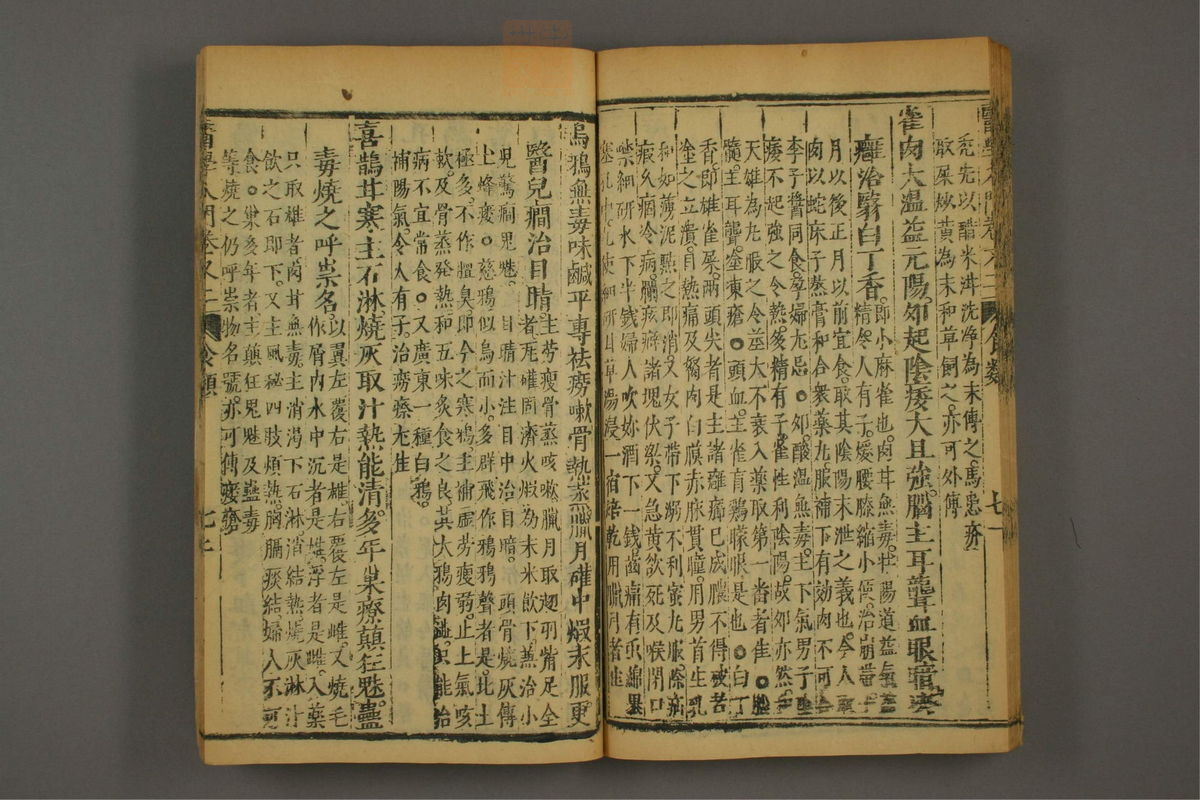 禿先以醋米泔洗淨為末傅之馬患疥
取屎炒黃為末和草飼之亦可外傅
雀肉大溫益元陽卵起陰痿大且強腦主耳聾血眼暗
癰治翳白丁香即小麻雀也肉甘無毒壯陽道益氣
精冬人有子煖腰膝縮小便治崩帶十
月以後正月以前宜食取其陰陽未泄之義也今人取
肉以蛇床子熬膏和合眾藥丸服補下有効肉不可合
李子醬同食孕婦尤忌○卵酸溫無毒主下氣男子陰
痿不起強之令熱多精有子雀性利陰陽故卵亦然和
天雄為丸服之令莖大不衰入藥取第一番者佳○腦
髓主耳聾塗凍瘡○頭血主雀盲鷄矇眼是也○白丁
香即雄雀屎兩頭尖者是主諸癰癤已成膿不得決苦
塗之立潰目熱痛及努肉白膜赤脉貫瞳用男首生乳
和如薄泥點之即消又女子帶下溺不利蜜丸服除疝
瘕久痼冷病腦痃癖諸塊伏梁又急黃欲死及喉閉口
噤細研水下半錢婦人吹妳酒下一錢齒痛有虫綿裹
塞孔中凡使細研以甘草湯浸一宿焙乾用臘月者佳
醫學入門卷之二 食類 七十
烏鴉無毒味鹹平專祛癆嗽骨熱蒸臘月礶中煆末服更
醫兒癎治目睛主勞瘦骨蒸咳嗽臘月取翅羽觜足全
者瓦礶固濟火煆為末米飲下兼治小
兒驚癎鬼魅○目睛汁注目中治目暗○頭骨燒灰傅
土蜂瘻○慈鴉似烏而小多群飛作鴉鴉聲者是比土
極多不作膻臭即今之寒鴉主補虛勞瘦弱止上氣咳
軟及骨蒸發熱和五味炙食之良其大鴉肉澁只能治
病不宜常食○又廣東一種白鴉
補陽氣令人有子治癆瘵尤佳
喜鵲甘寒主石淋燒灰取汁熱能清多年巢療顛狂魅蠱
毒燒之呼祟名以翼左覆右是雄右覆左是雌又燒毛
作屑內水中沉者是雄浮者是雌入藥
只取雄者肉甘無毒主消渴下石淋消結熱燒灰淋汁
飲之石即下又主風秘四肢煩熱胸膈痰結婦人不可
食○巢多年者主顛狂鬼魅及蠱毒
等燒之仍呼祟物名號亦可傅瘻瘡
醫學入門卷之二 食類